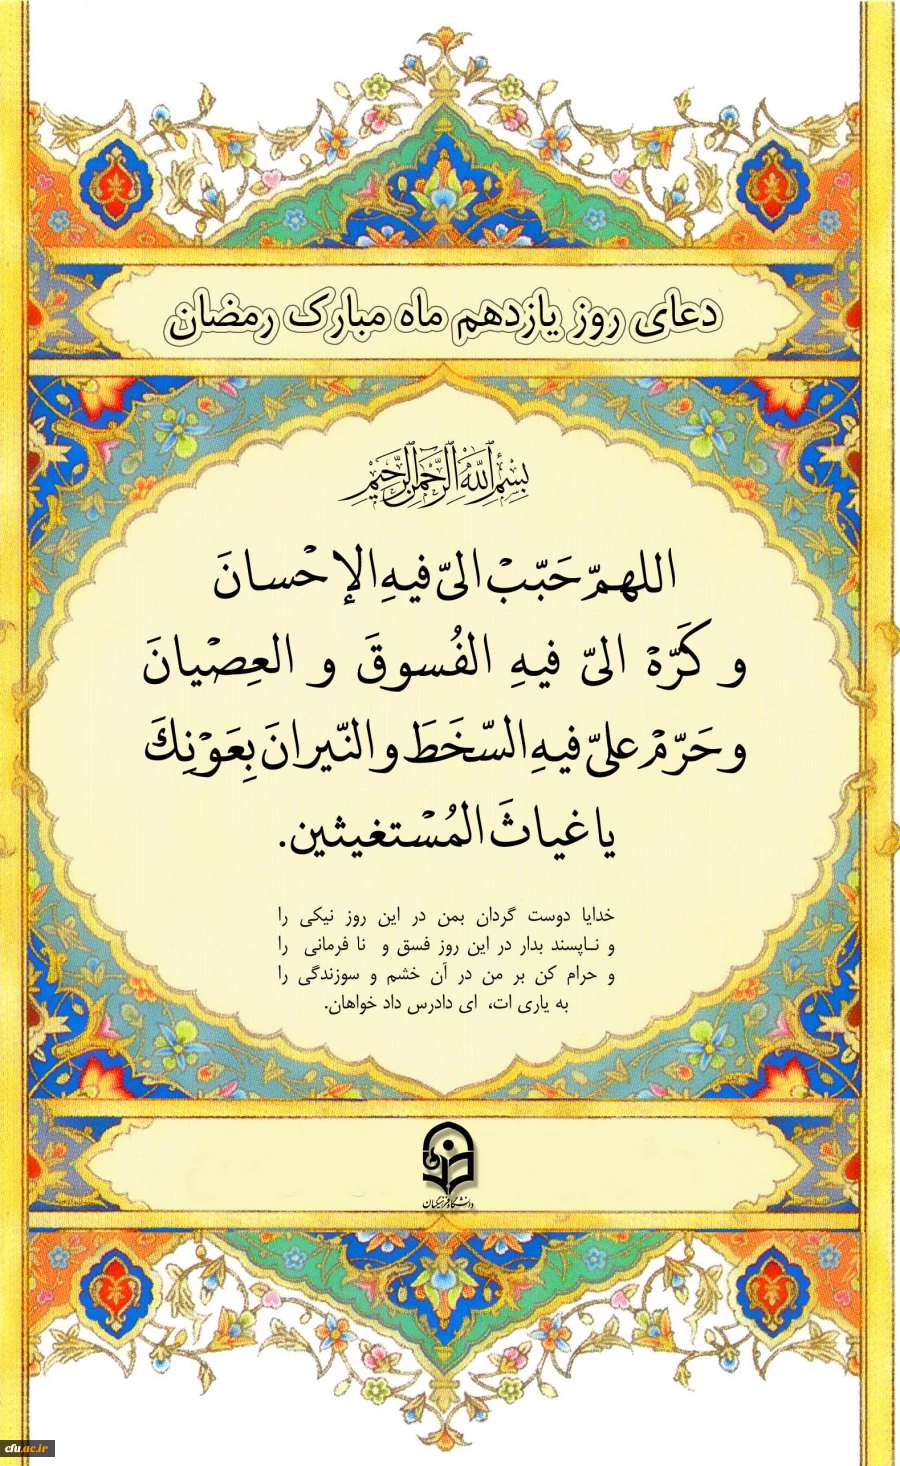 دعای روز یازدهم ماه مبارک رمضان
بِسْمِ ٱللَّهِ ٱلرَّحْمَٰنِ ٱلرَّحِيمِ
اللهمّ حَبّبْ الیّ فیهِ الإحْسانَ
و کَرّهْ الیّ فیهِ الفُسوقَ و العِصْیانَ
و حَرّمْ علیّ فیهِ السّخَطَ و النّیرانَ بِعَوْنِكَ
یا غیاثَ المُسْتغیثین.
خدایا دوست گردان بمن در این روز نیکی را
و ناپسند بدار در این روز فسق و نا فرمانی را
و حرام کن بر من در آن خشم و سوزندگی را
به یاری ات، ای دادرس داد خواهان.
دانشگاه فرهنگیان
cfu.ac.ir